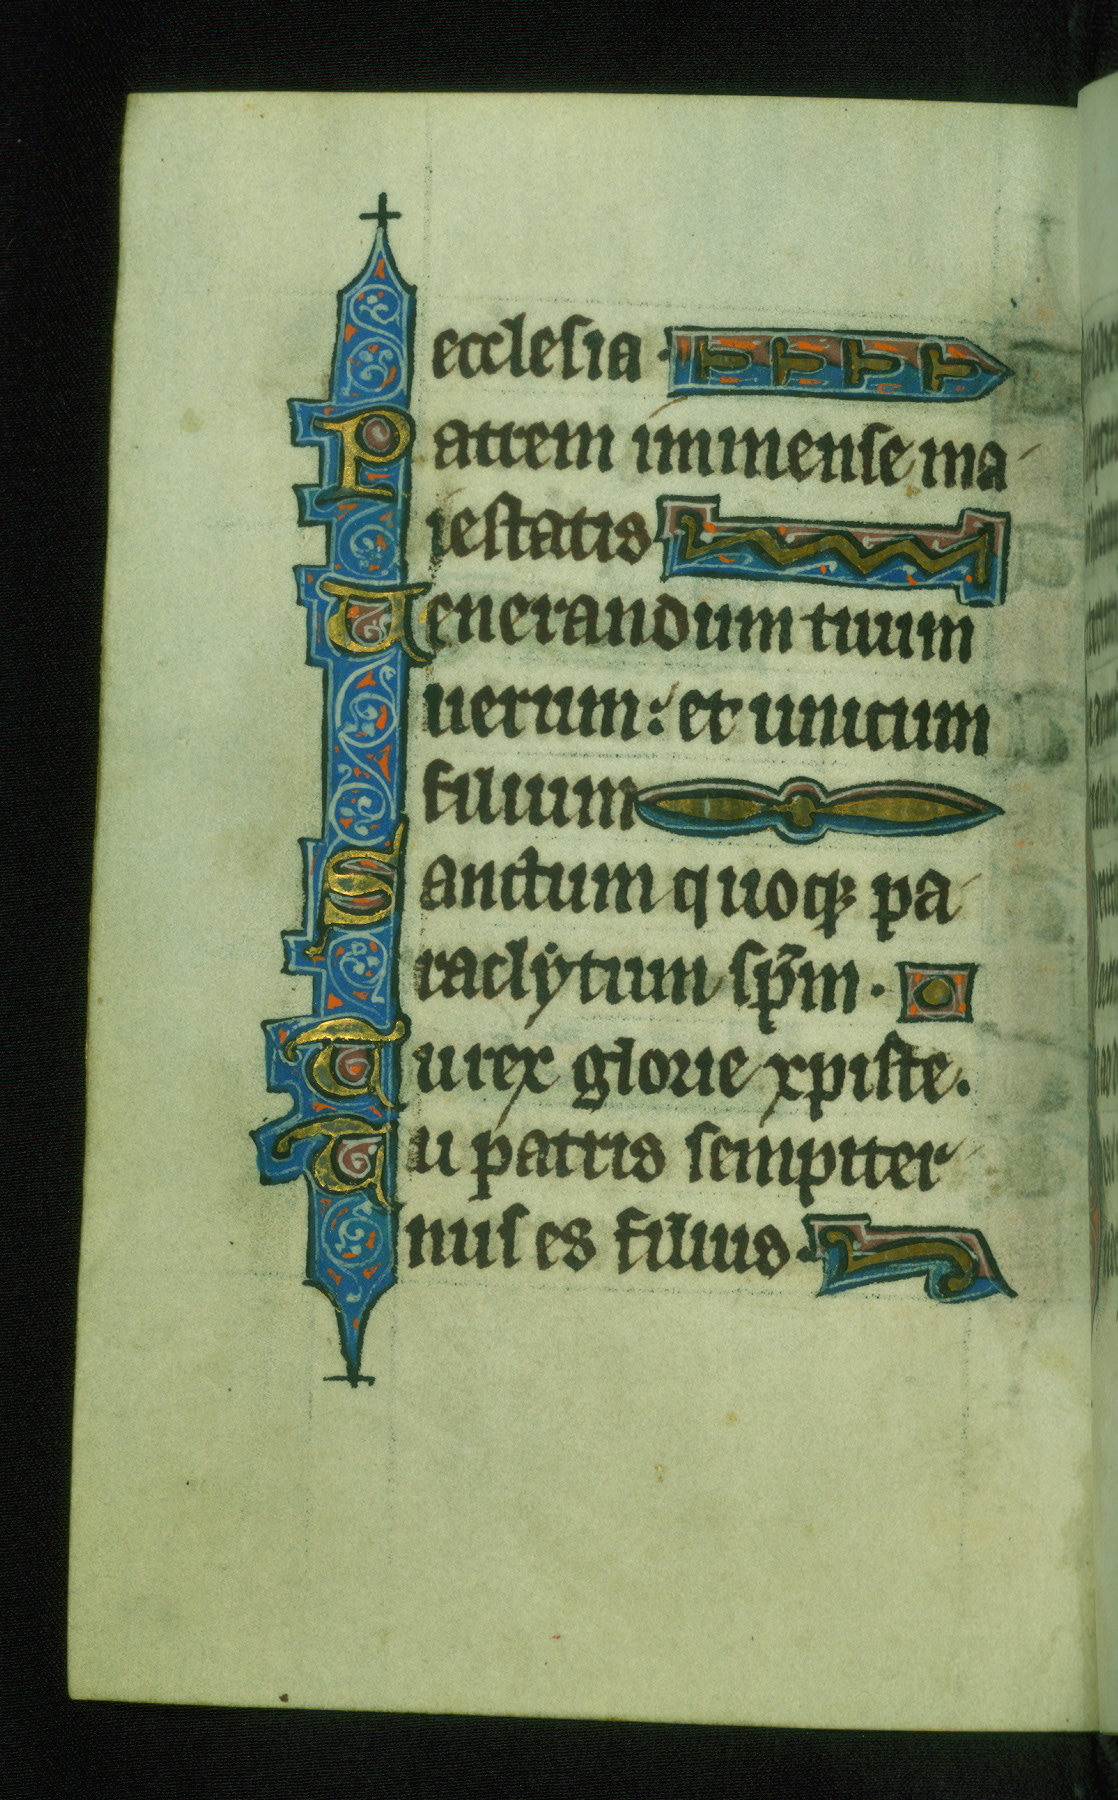 ecclesia ·
Patrem immense ma
iestatis
Uenerandum tuum
uerum: et unicum
filium
Sanctum quoq; pa
raclẏtum sp̄m ·
Tu rex glorie xpiste.
Tu patris sempiter
nus es filius ·